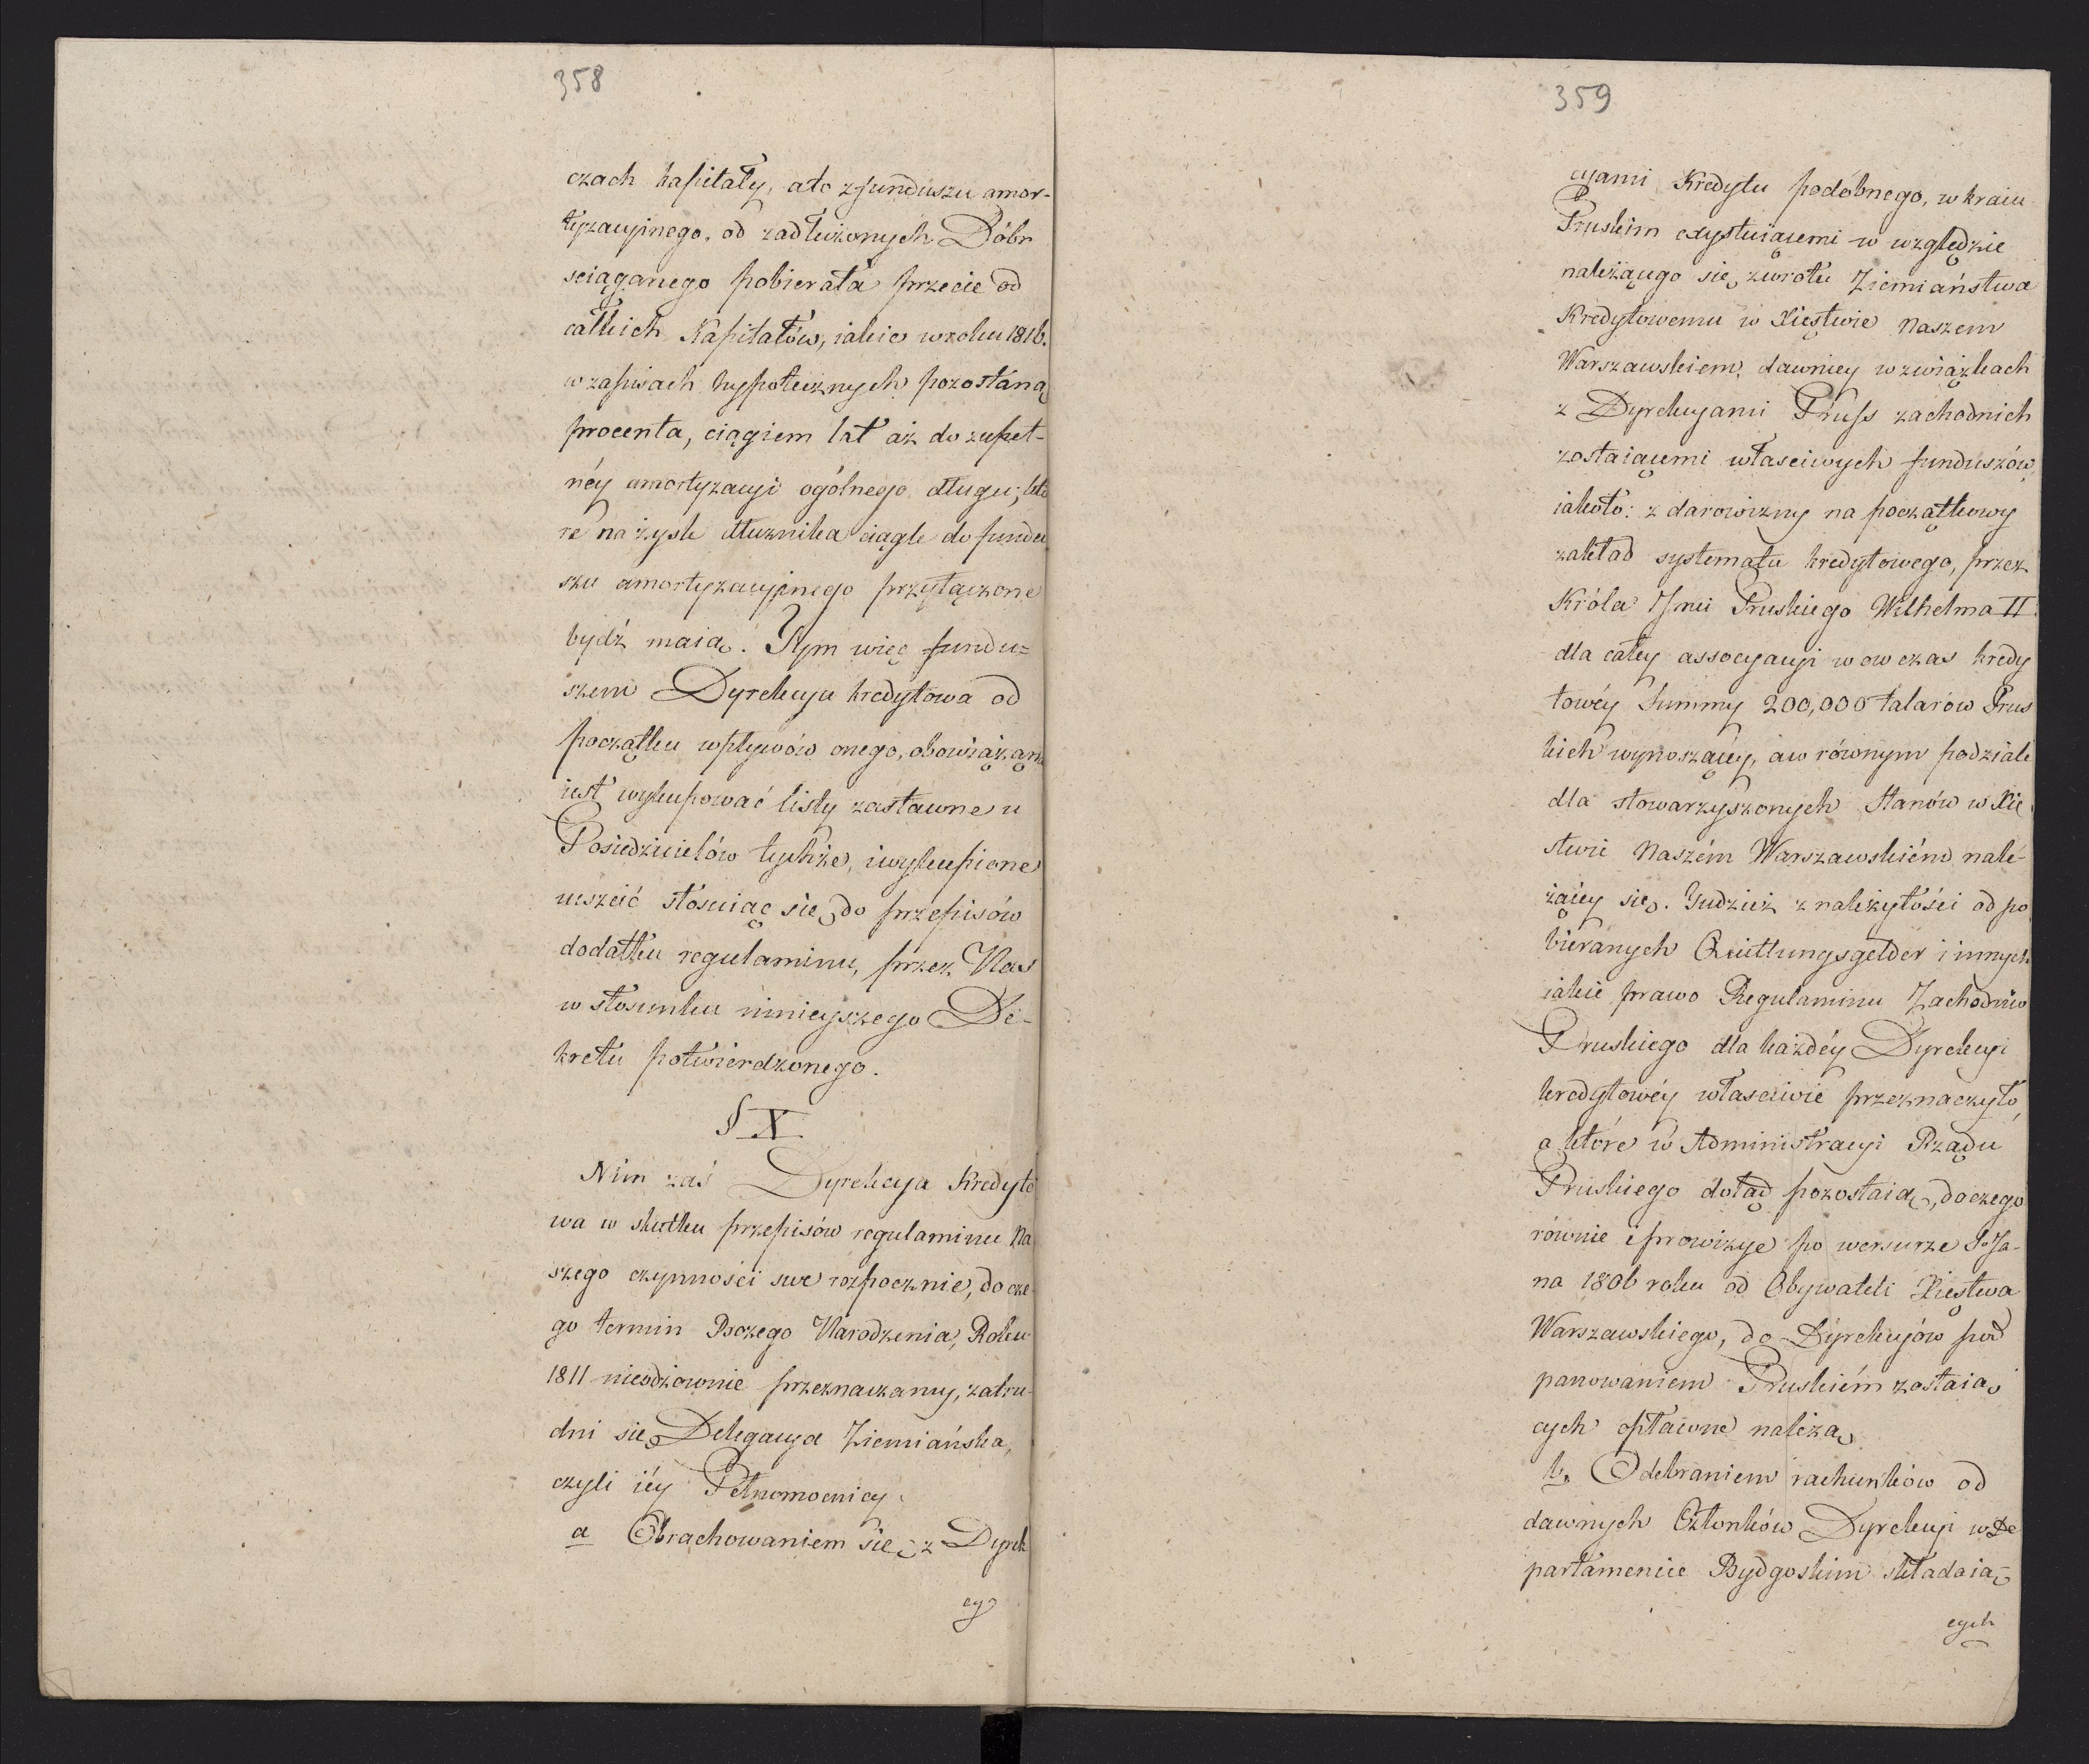 358
czach kapitały, ato z funduszu amor-
tyzacyinego, od zadłużonych Dóbr
sciąganego pobierała przecie od
całkich Kapitałów, iakie w roku 1816.
w zapisach hypotecznych pozostaną
procenta, ciągiem lat aż do zupeł-
néy amortyzacyi ogólnego długu; któ
re na zysk dłużnika ciągle do fundu
szu amortyzacyinego przyłączone
bydź maią. Tym więc fundu=
szem Dyrekcya kredytowa od
początku wpływów onego, obowiązaną
iest wykupować listy zastawne u
Posiedzicielów tychże, i wykupione
niszcić stosuiąc się do przepisów
dodatku regulaminu, przez Nas
w stosunku ninieyszego De-
kretu potwierdzonego.
§ X
Nim zaś Dyrekcya Kredyto
wa w skutku przepisów regulaminu Na
szego czynności swe rozpocznie, do cze-
go termin Bożego Narodzenia, Roku
1811 nieodzownie przeznaczamy, zatru-
dni się Delegacya Ziemiańska,
czyli iéy Pełnomocnicy.
a Obrachowaniem się z Dyrek
cy
359
cyami Kredytu podobnego, w kraiu
Pruskim exystuiącemi w względzie
należącego się zwrotu Ziemiaństwa
Kredytowemu w Xięstwie Naszem
Warszawskiem, dawniey w związkach
z Dyrekcyami Pruss zachodnich
zostaiącemi właściwych funduszów,
iakoto: z darowizny na początkowy
zakład systematu kredytowego, przez
Króla Jmci Pruskiego Wilhelma II.
dla całey associacyi wowczas kredy
towéy Summy 200,000 talarów Prus
kich wynoszącey, a w równym podziale
dla stowarzyszonych Stanów w Xię
stwie Naszém Warszawskiém nale-
żącey się. Tudzież z należytości od po
bieranych Quittungsgelder i innych
iakie prawo Regulaminu Zachodnio
Pruskiego dla każdéy Dyrekcyi
kredytowéy właściwie przeznaczyło,
a które w Administracyi Rządu
Pruskiego dotąd pozostaią, do czego
równie i prowizye po wersurze S. Ja-
na 1806 roku od Obywateli Xięstwa
Warszawskiego, do Dyrekcyów pod
panowaniem Pruskiém zostaią
cych opłacone należą.
b. Odebraniem rachunków od
dawnych Członków Dyrekcyi w De
partamencie Bydgoskim składaią-
cych